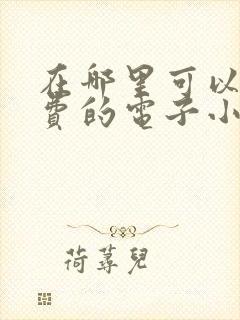 在哪里可以
費的電子小
荷蕁兒